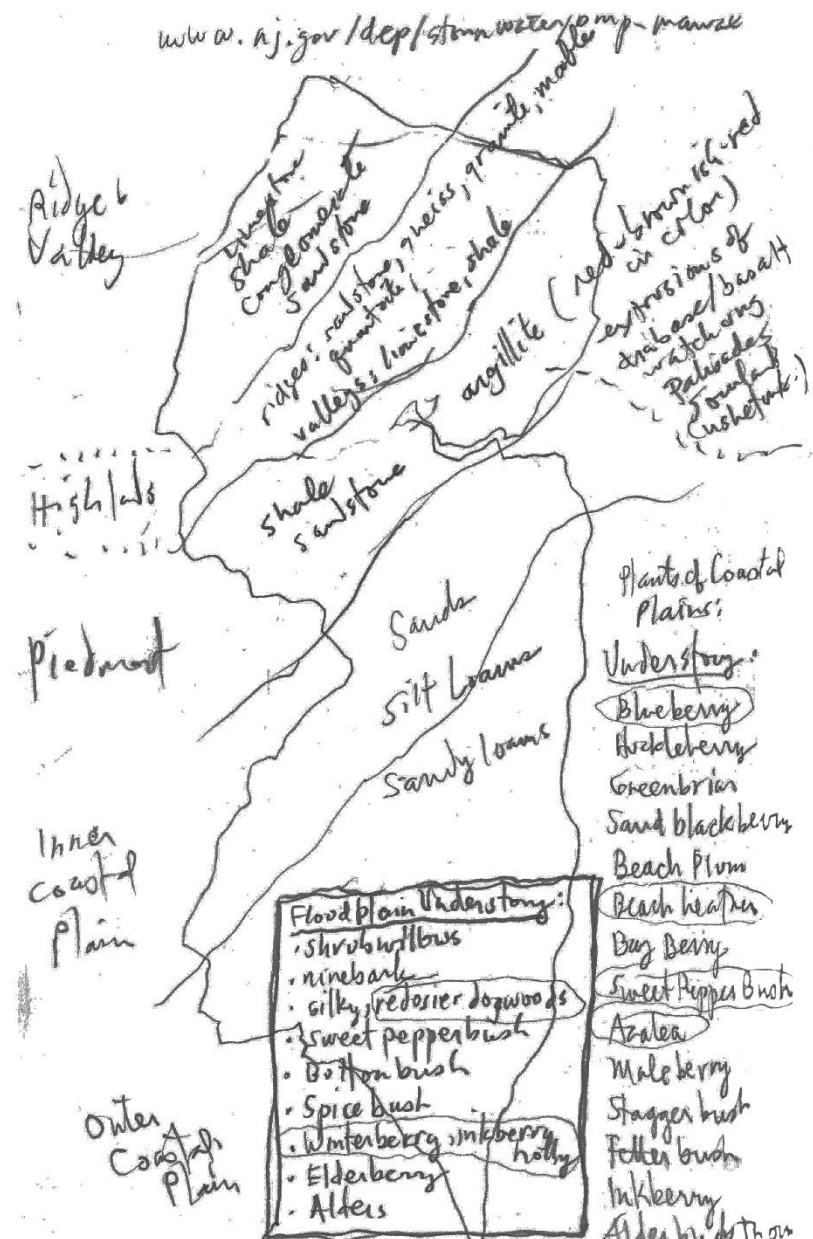 www.nj.gov/dep/stormwater/bmp-manual
Ridge &
Valley
Limestone
shale
conglomerate
sandstone
ridges: sandstone, gneiss, granite, marble
quartzite,
valleys: limestone, shale
argillite (red-brownish-red
in color)
extrusions of
diabase/basalt
watchung
Palisades
Sourland
Highlands
shale
sandstone
Piedmont
Sands
Silt Loams
Sandy loams
Inner
Coastal
Plain
Outer
Coastal
Plain
Floodplain Understory:
• shrub willows
• ninebark
• silky, redosier dogwoods
• Sweet pepperbush
• Bottonbush
• Spice bush
• Winterberry, inkberry
holly
• Elderberry
• Alders
Plants of Coastal
Plains:
Understory:
Blueberry
Huckleberry
Greenbriar
Sand blackberry
Beach Plum
Beach heather
Bay Berry
Sweet Pepper Bush
Azalea
Maleberry
Stagger bush
Fetter bush
Inkberry